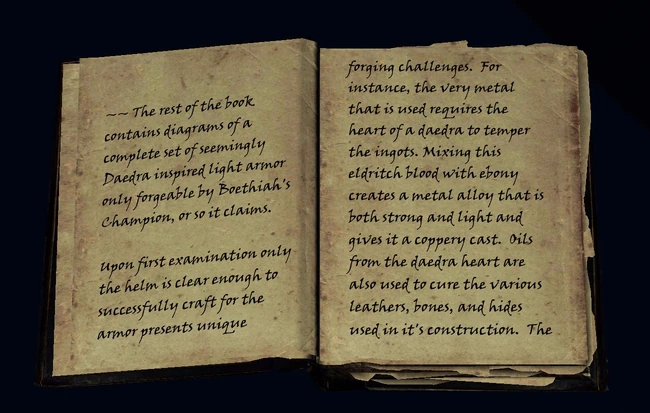 ~~ The rest of the book
contains diagrams of a
complete set of seemingly
Daedra inspired light armor
only forgeable by Boethiah's
Champion, or so it claims.
Upon first examination only
the helm is clear enough to
successfully craft for the
armor presents unique
forging challenges. For
instance, the very metal
that is used requires the
heart of a daedra to temper
the ingots. Mixing this
eldritch blood with ebony
creates a metal alloy that is
both strong and light and
gives it a coppery cast. Oils
from the daedra heart are
also used to cure the various
leathers, bones, and hides
used in it's construction. The